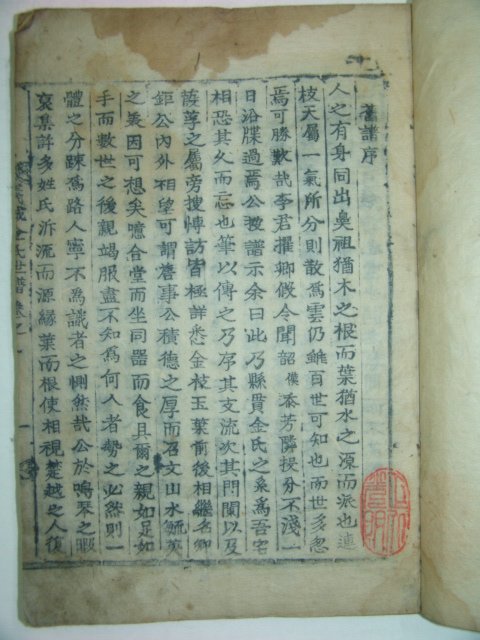 舊譜序
人之有身同出鼻祖猶木之根而葉猶水之源而派也連
枝天屬一氣所分則散爲雲仍雖百世可知也而世多忽
焉可勝歎哉李君擢卿假令聞韶僕忝芳隣授分不淺一
日沿牒過焉公投譜示余曰此乃縣貴金氏之系爲吾宅
相恐其久而忘也筆以傳之乃序其支流次其門閥以及
葭莩之屬旁搜博訪皆極詳悉金枝玉葉前後相繼名卿
鉅公內外相望可謂舊事公積德之厚而召文山水毓英
之美因可想矣噫合堂而坐同器而食具爾之親如足如
手而數世之後親竭服盡不知爲何人者勢之必然則一
體之分疎爲路人寧不爲識者之惻然哉公於鳴琴之暇
裒集許多姓氏泝流而源緣葉而根使相視楚越之人復
城金氏世譜卷之一
一